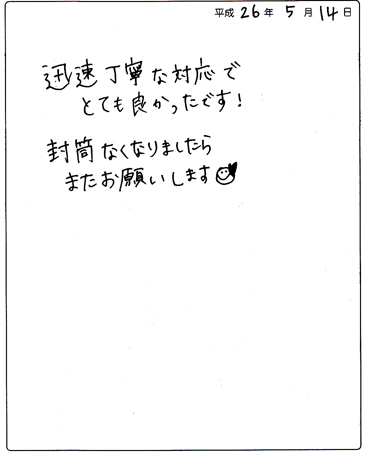 平成 26 年 5 月 14 日
迅速丁寧な対応で
とても良かったです!
封筒なくなりましたら
またお願いします